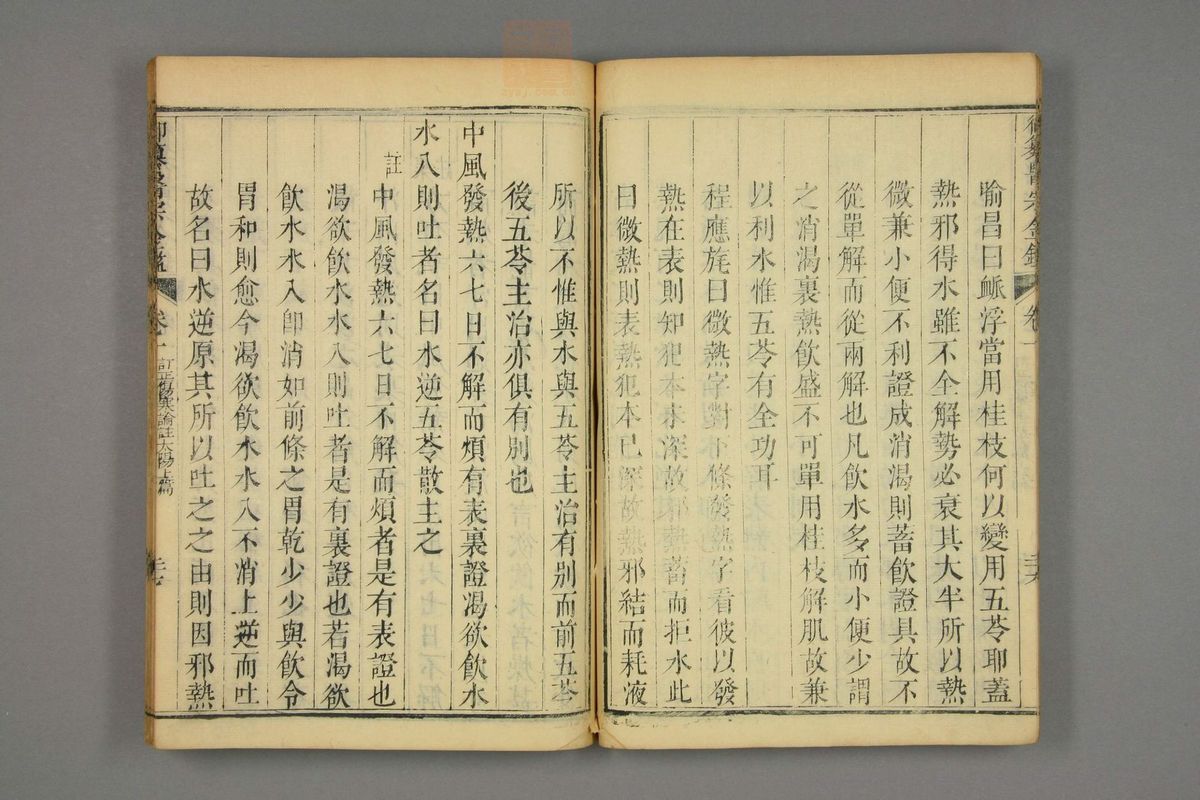 喻昌曰脈浮當用桂枝何以變用五苓耶蓋
熱邪得水雖不全解勢必衰其大半所以熱
微兼小便不利證成消渴則蓄飲證具故不
從單解而從兩解也凡飲水多而小便少謂
之消渴裏熱飲盛不可單用桂枝解肌故兼
以利水惟五苓有全功耳
程應旄曰微熱字對下條發熱字看彼以發
熱在表則知犯本未深故邪熱蓄而拒水此
曰微熱則表熱犯本已深故熱邪結而耗液
所以不惟與水與五苓主治有別而前五苓
後五苓主治亦俱有別也
中風發熱六七日不解而煩有表裏證渴欲飲水
水入則吐者名曰水逆五苓散主之
註中風發熱六七日不解而煩者是有表證也
渴欲飲水水入則吐者是有裏證也若渴欲
飲水水入卽消如前條之胃乾少少與飲令
胃和則愈今渴欲飲水水入不消上逆而吐
故名曰水逆原其所以吐之之由則因邪熱
御纂醫宗金鑑 卷一 訂正傷寒論註太陽上篇